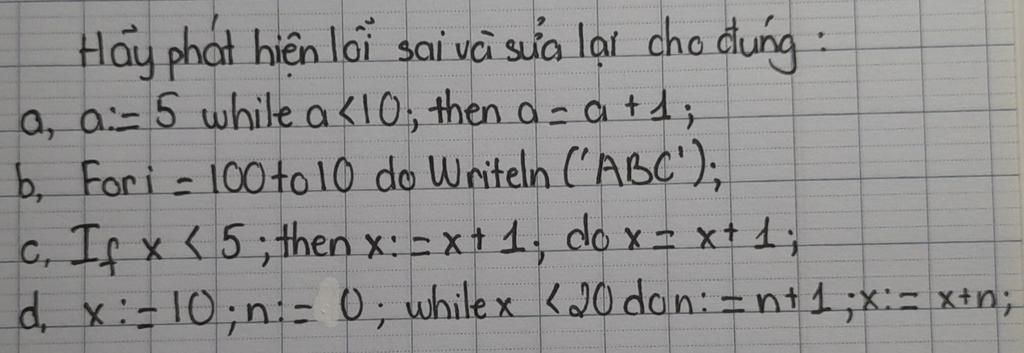 Hãy phát hiện lỗi sai và sửa lại cho đúng :
a, a:= 5 while a <10; then a = a + 1;
b, For i = 100 to 10 do Writeln ('ABC');
c, If x < 5 ; then x: = x + 1; do x = x + 1;
d, x: = 10 ; n: = 0 ; while x < 20 do n: = n + 1 ; x: = x + n;